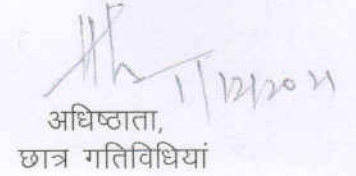 1/12/2021
अधिष्ठाता,
छात्र गतिविधियां